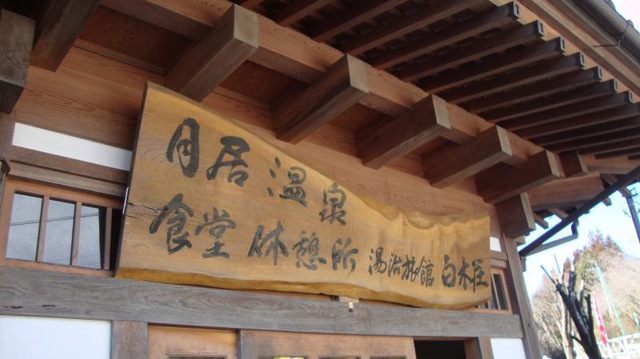 月居温泉
食堂休憩所 湯治旅館 白木荘